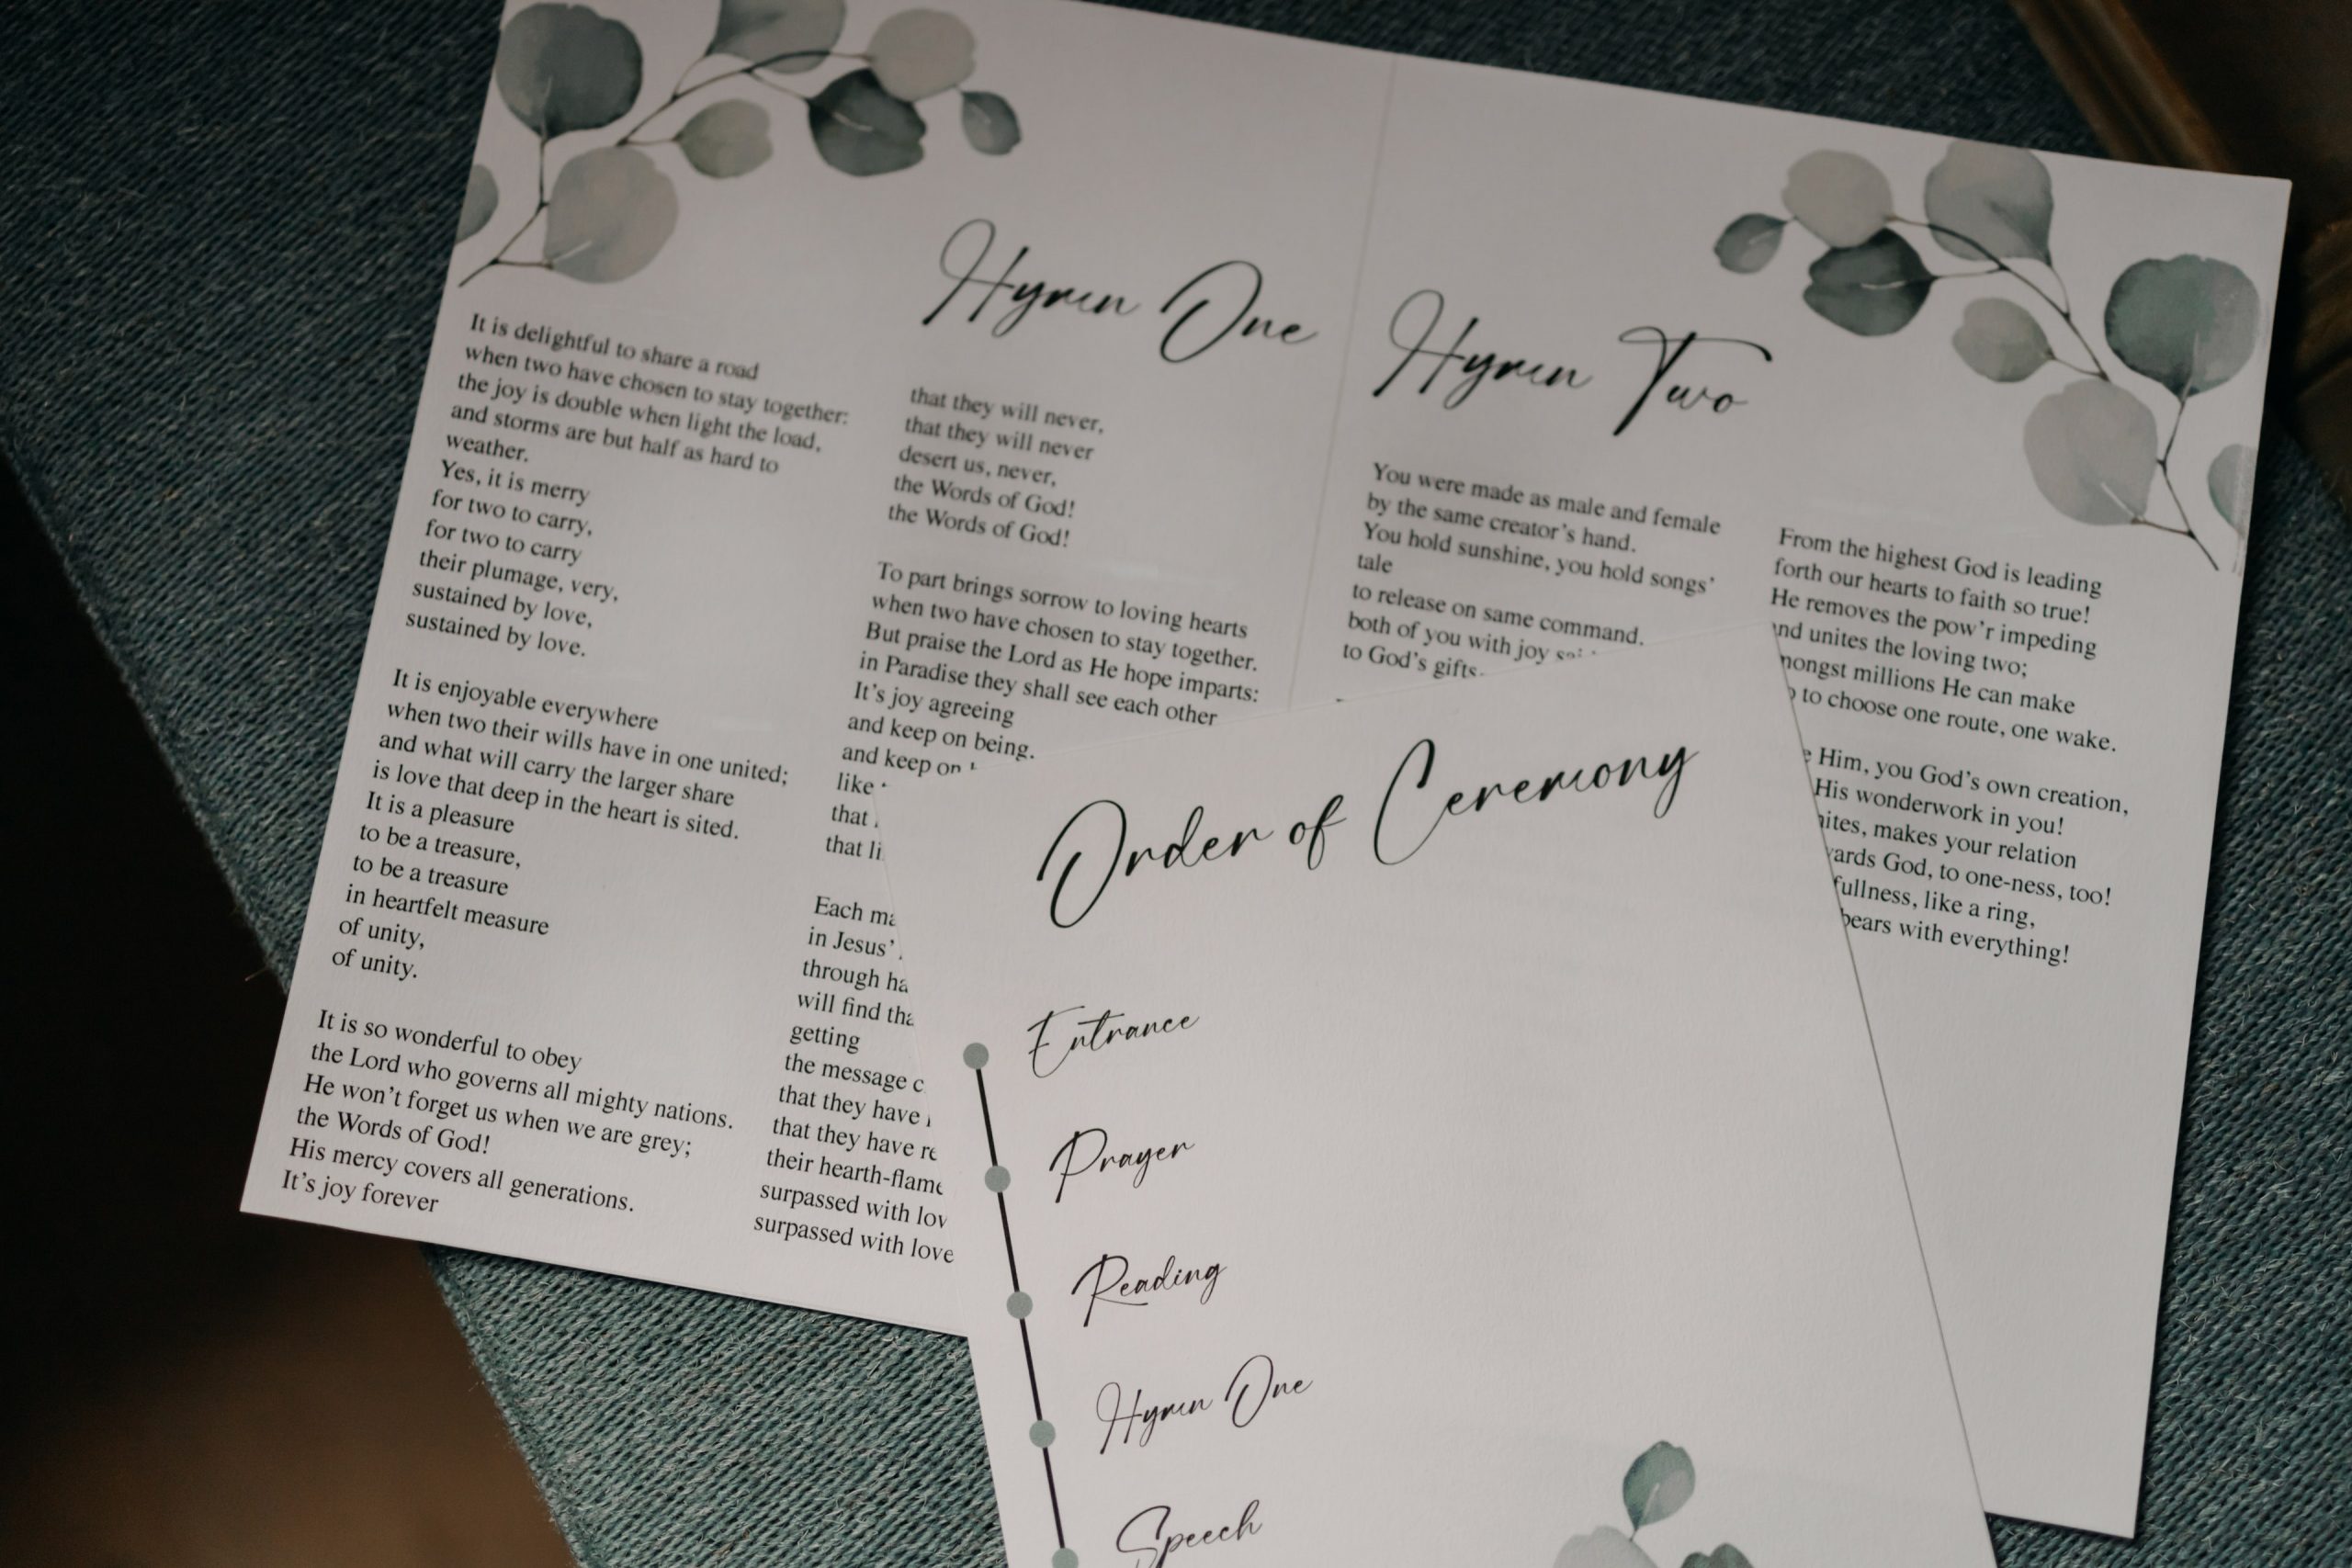 Hymn One
It is delightful to share a road
when two have chosen to stay together:
the joy is double when light the load,
and storms are but half as hard to
weather.
Yes, it is merry
for two to carry,
for two to carry
their plumage, very,
sustained by love,
sustained by love.
It is enjoyable everywhere
when two their wills have in one united;
and what will carry the larger share
is love that deep in the heart is sited.
It is a pleasure
to be a treasure,
to be a treasure
in heartfelt measure
of unity,
of unity.
It is so wonderful to obey
the Lord who governs all mighty nations.
He won't forget us when we are grey;
the Words of God!
His mercy covers all generations.
It's joy forever
that they will never,
that they will never
desert us, never,
the Words of God!
the Words of God!
To part brings sorrow to loving hearts
when two have chosen to stay together.
But praise the Lord as He hope imparts:
in Paradise they shall see each other
It's joy agreeing
and keep on being.
and keep on
like
that
that
Each
in Jesus'
through
will find
getting
the message
that they have
that they have
their
surpassed with
surpassed with love
Hymn Two
You were made as male and female
by the same creator's hand.
You hold sunshine, you hold songs'
tale
to release on same command.
both of you with joy
to God's gifts
From the highest God is leading
forth our hearts to faith so true!
He removes the pow'r impeding
and unites the loving two;
millions He can make
to choose one route, one wake.
Him, you God's own creation,
His wonderwork in you!
makes your relation
God, to one-ness, too!
fullness, like a ring,
bears with everything!
Order of Ceremony
Entrance
Prayer
Reading
Hymn One
Speech